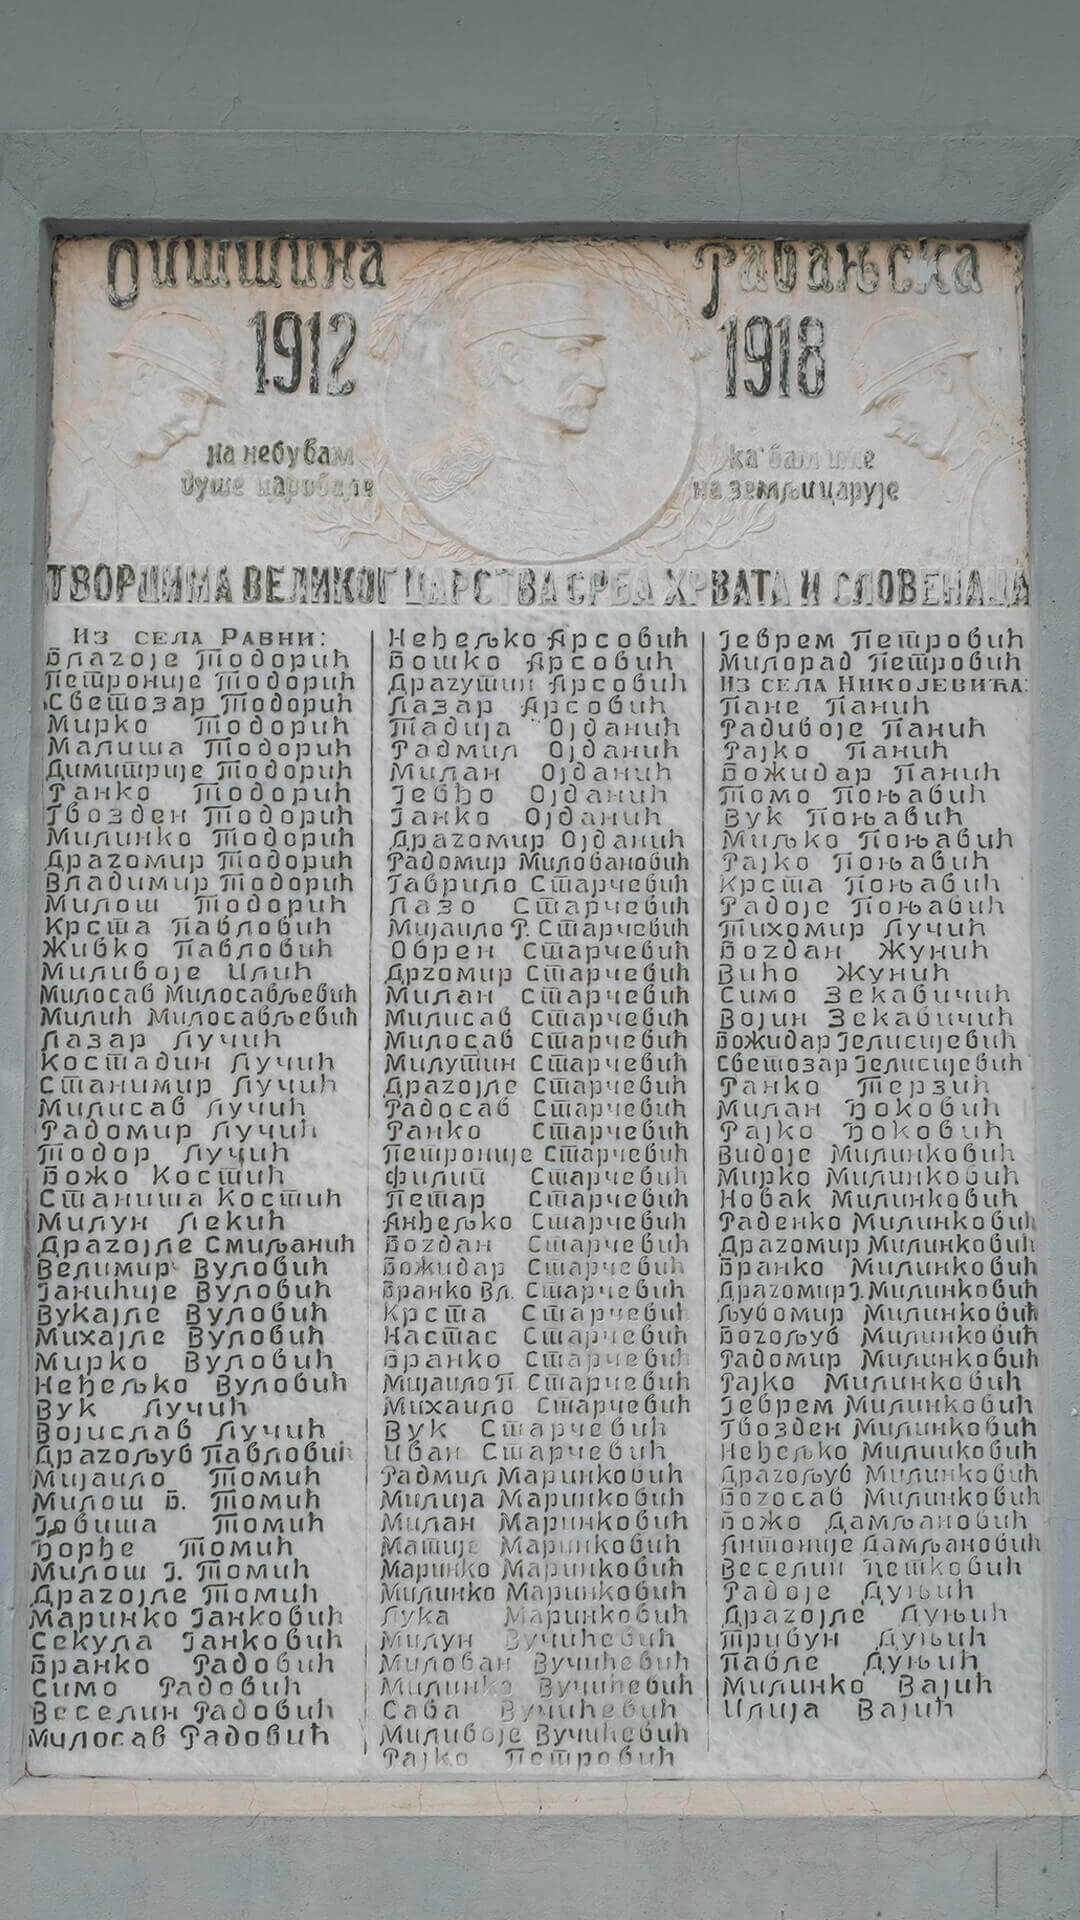 Општина Равањска
1912 1918
на небу вам ка' вам име
душе на земљи царује
ТВОРЦИМА ВЕЛИКОГ ЦАРСТВА СРБА ХРВАТА И СЛОВЕНАЦА
Из села Равни:
Благоје Тодорић
Петроније Тодорић
Светозар Тодорић
Мирко Тодорић
Малиша Тодорић
Димитрије Тодорић
Ранко Тодорић
Гвозден Тодорић
Милинко Тодорић
Драгомир Тодорић
Владимир Тодорић
Милош Тодорић
Крста Павловић
Живко Павловић
Миливоје Илић
Милосав Милосављевић
Милић Милосављевић
Лазар Лучић
Костадин Лучић
Станимир Лучић
Милисав Лучић
Радомир Лучић
Тодор Лучић
Божо Костић
Станиша Костић
Милун Лекић
Драгојле Смиљанић
Велимир Вуловић
Јанићије Вуловић
Вукајле Вуловић
Михајле Вуловић
Мирко Вуловић
Неђељко Вуловић
Вук Лучић
Војислав Лучић
Драгољуб Павловић
Мијаило Томић
Милош Б. Томић
Јовиша Томић
Ђорђе Томић
Милош Ј. Томић
Драгојле Томић
Маринко Јанковић
Секула Јанковић
Бранко Радовић
Симо Радовић
Веселин Радовић
Милосав Радовић
Неђељко Арсовић
Бошко Арсовић
Драгутин Арсовић
Лазар Арсовић
Тадија Ојданић
Радмил Ојданић
Милан Ојданић
Јевђо Ојданић
Јанко Ојданић
Драгомир Ојданић
Радомир Миловановић
Гаврило Старчевић
Лазо Старчевић
Мијаило Р. Старчевић
Обрен Старчевић
Дргомир Старчевић
Милан Старчевић
Милисав Старчевић
Милосав Старчевић
Милутин Старчевић
Драгојле Старчевић
Радосав Старчевић
Ранко Старчевић
Петроније Старчевић
Филип Старчевић
Петар Старчевић
Анђељко Старчевић
Богдан Старчевић
Божидар Старчевић
Бранко Вл. Старчевић
Крста Старчевић
Настас Старчевић
Бранко Старчевић
Мијаило П. Старчевић
Михаило Старчевић
Вук Старчевић
Иван Старчевић
Радмил Маринковић
Милија Маринковић
Милан Маринковић
Матије Маринковић
Маринко Маринковић
Милинко Маринковић
Лука Маринковић
Милун Вучићевић
Милован Вучићевић
Милинко Вучићевић
Сава Вучићевић
Миливоје Вучићевић
Рајко Петровић
Јеврем Петровић
Милорад Петровић
Из села Никојевића:
Пане Панић
Радивоје Панић
Рајко Панић
Божидар Панић
Томо Поњавић
Вук Поњавић
Миљко Поњавић
Рајко Поњавић
Крста Поњавић
Радоје Поњавић
Тихомир Лучић
Богдан Жунић
Вићо Жунић
Симо Зекавичић
Војин Зекавичић
Божидар Јелисијевић
Светозар Јелисијевић
Ранко Терзић
Милан Ђоковић
Рајко Ђоковић
Видоје Милинковић
Мирко Милинковић
Новак Милинковић
Раденко Милинковић
Драгомир Милинковић
Бранко Милинковић
Драгомир Ј. Милинковић
Љубомир Милинковић
Богољуб Милинковић
Радомир Милинковић
Рајко Милинковић
Јеврем Милинковић
Гвозден Милинковић
Неђељко Милинковић
Драгољуб Милинковић
Богосав Милинковић
Божо Дамљановић
Антоније Дамљановић
Веселин Петковић
Радоје Дуњић
Драгојле Дуњић
Тривун Дуњић
Павле Дуњић
Милинко Вајић
Илија Вајић